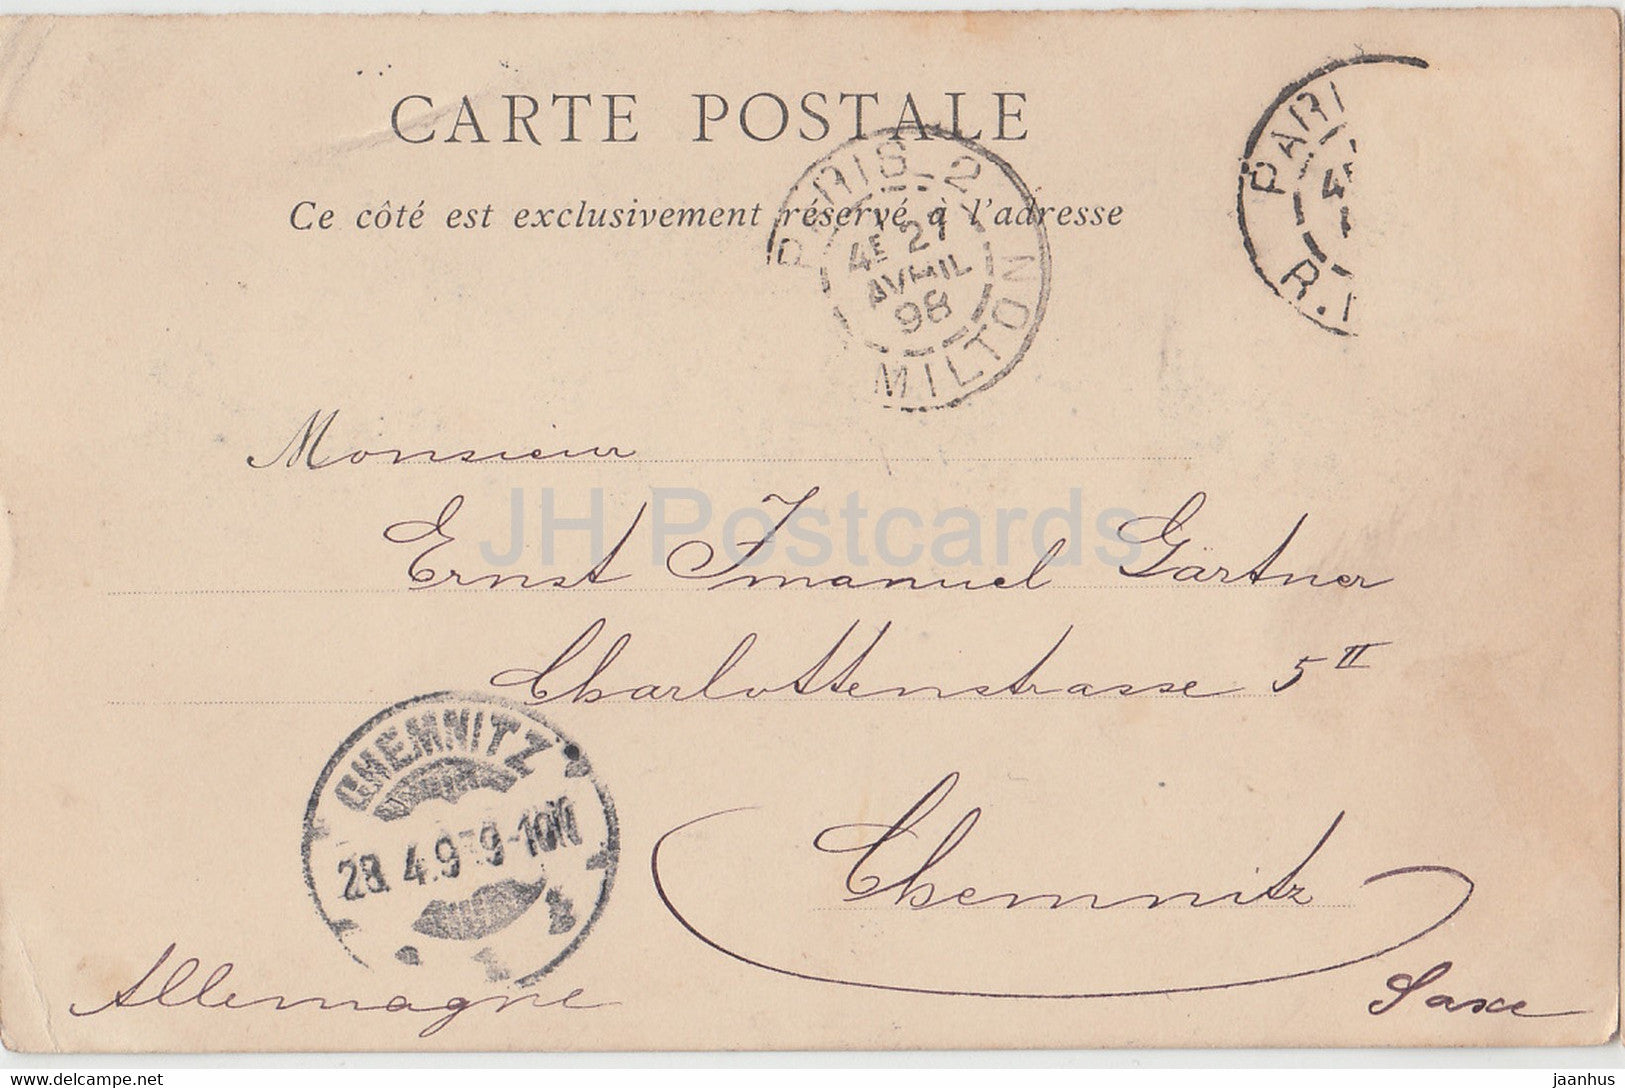 CARTE POSTALE
Ce côté est exclusivement réservé à l'adresse
PARIS_2
4E 27
AVRIL
98
MILTON
PARI
4E
R.
Monsieur
Ernst Imanuel Gärtner
Charlottenstrasse 5 II
Chemnitz
Saxe
Allemagne
CHEMNITZ
28. 4.9 9-10N
JH Postcards
delcampe.net
jaanhus